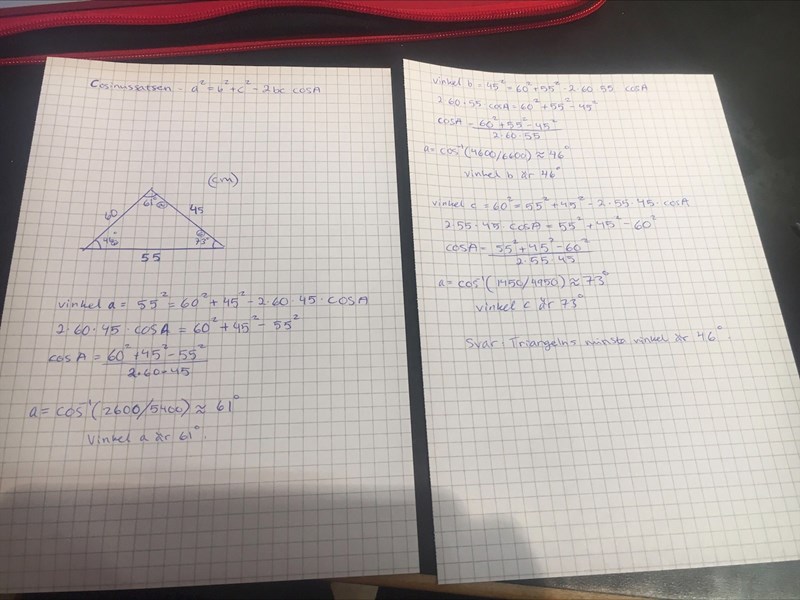 Cosinussatsen - a² = b² + c² - 2bc cosA
(cm)
60
61°
45
46°
73°
55
vinkel a = 55² = 60² + 45² - 2·60·45·cosA
2·60·45·cosA = 60² + 45² - 55²
cosA = 60² + 45² - 55²
2·60·45
a = cos⁻¹(2600/5400) ≈ 61°
Vinkel a är 61°.
vinkel b = 45² = 60² + 55² - 2·60·55·cosA
2·60·55·cosA = 60² + 55² - 45²
cosA = 60² + 55² - 45²
2·60·55
a = cos⁻¹(4600/6600) ≈ 46°
vinkel b är 46°
vinkel c = 60² = 55² + 45² - 2·55·45·cosA
2·55·45·cosA = 55² + 45² - 60²
cosA = 55² + 45² - 60²
2·55·45
a = cos⁻¹(1450/4950) ≈ 73°
vinkel c är 73°
Svar: Triangelns minsta vinkel är 46°.